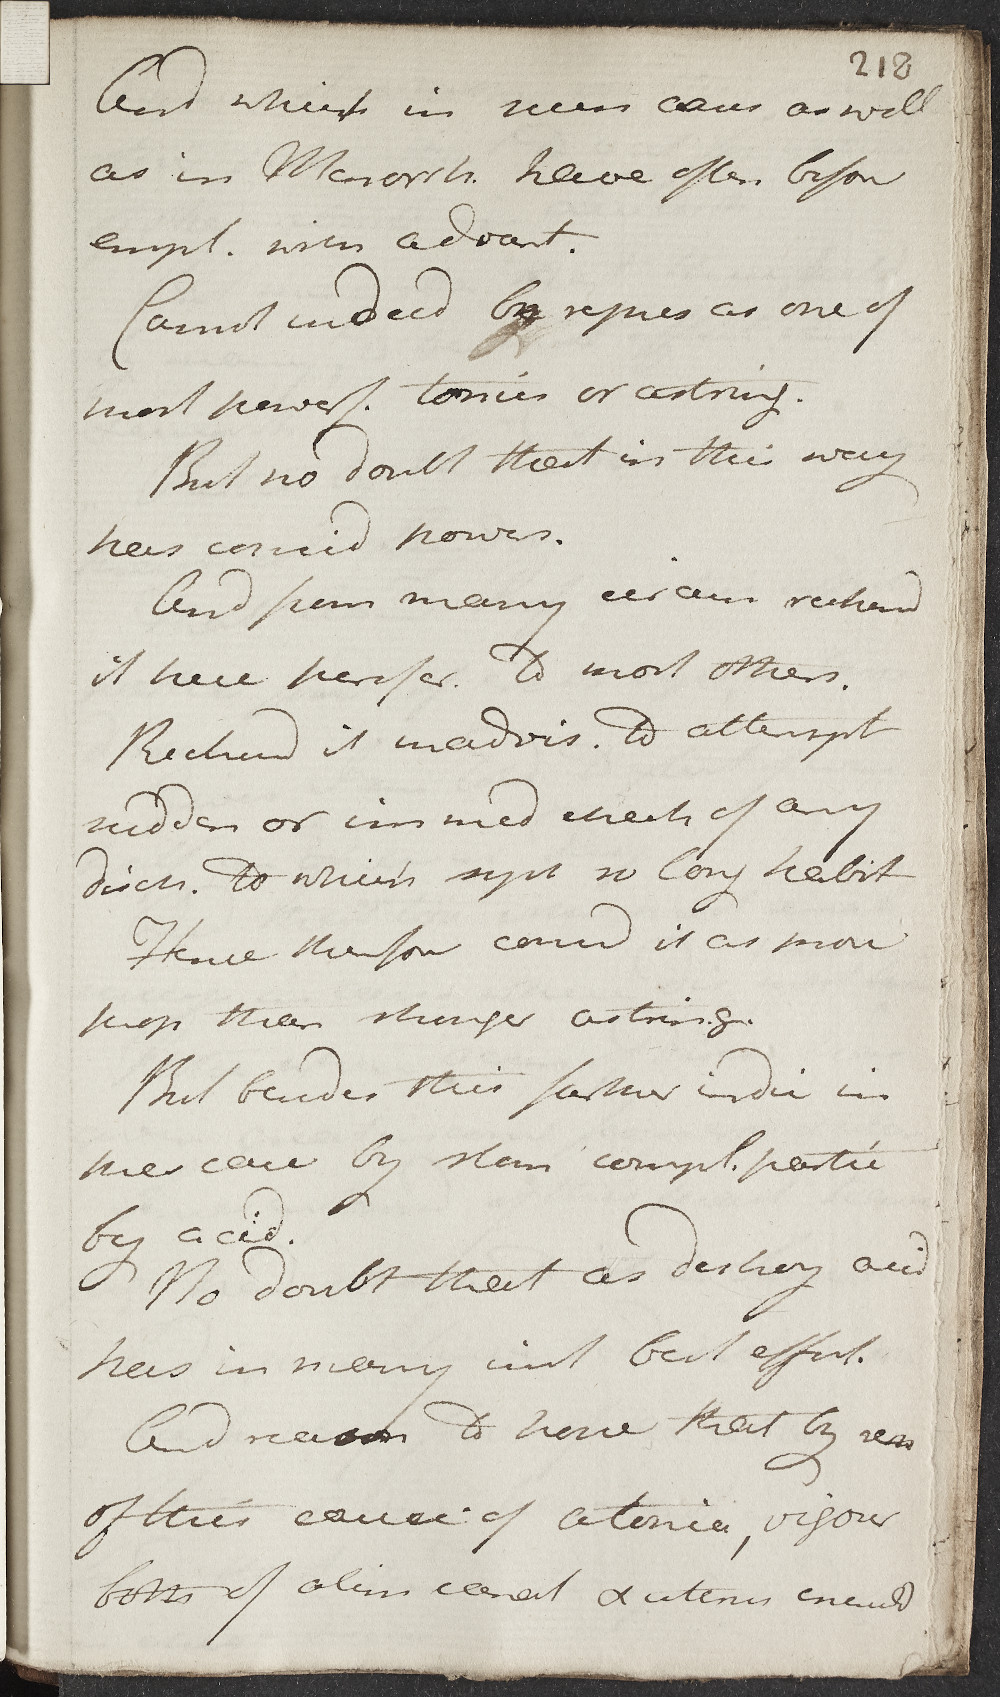 218
And which in such cases as well
as in Menorrh. have often before
empl. with advant.
Cannot indeed by repres as one of
most powerf. tonics or astring.
But no doubt that in this way
has consid powers.
And from many circum reckond
it here prefer. to most others.
Reckond it inadvis. to attempt
sudden or immed check of any
disch. to which syst so long habit
Hence therefore consid it as more
prop than stronger astring.
But besides this farther indic in
this case by stom compl. partic
by acid.
No doubt that as destroy acid
has in many inst best effect.
And reason to hope that by rem
of this cause of atonia, vigour
both of alim canal & uterus encreasd